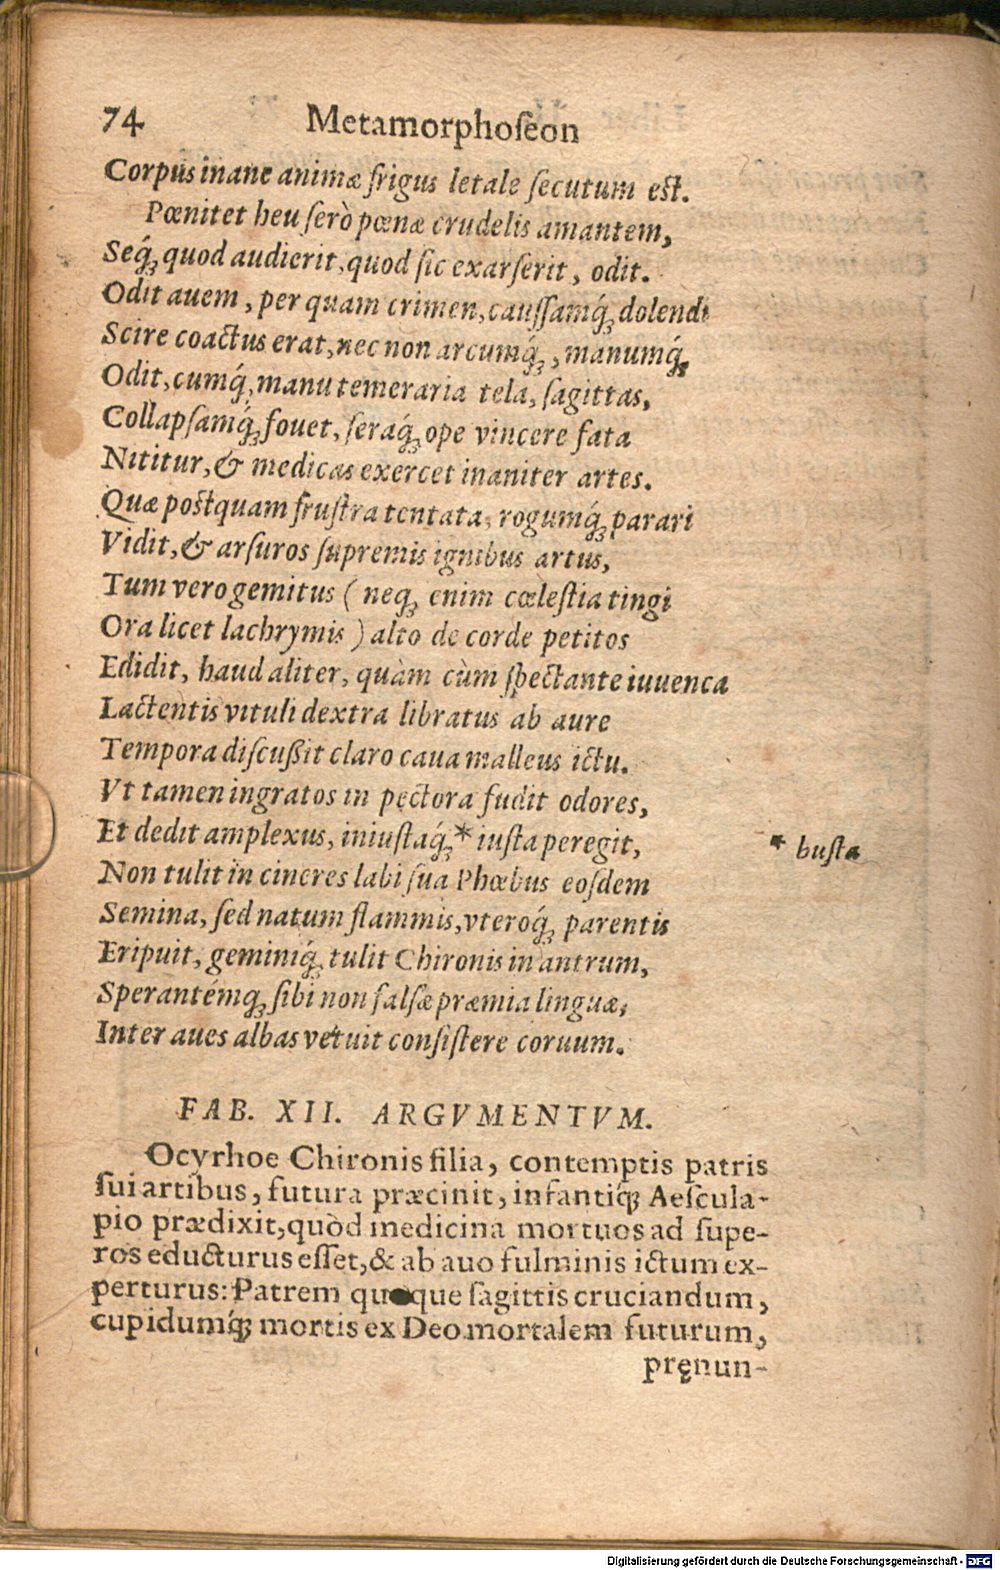 74 Metamorphoseon
Corpus inane animæ frigus letale secutum est.
Pœnitet heu serò pœnæ crudelis amantem,
Seq́ꝫ quod audierit, quod sic exarserit, odit.
Odit auem, per quam crimen, caussamq́ꝫ dolendi
Scire coactus erat, nec non arcumq́ꝫ, manumq́ꝫ
Odit, cumq́ꝫ manu temeraria tela, sagittas,
Collapsamq́ꝫ fouet, seraq́ꝫ ope vincere fata
Nititur, & medicas exercet inaniter artes.
Quæ postquam frustra tentata, rogumq́ꝫ parari
Vidit, & arsuros supremis ignibus artus,
Tum vero gemitus ( neqꝫ enim cœlestia tingi
Ora licet lachrymis ) alto de corde petitos
Edidit, haud aliter, quàm cùm spectante iuuenca
Lactentis vituli dextra libratus ab aure
Tempora discußit claro caua malleus ictu.
Vt tamen ingratos in pectora fudit odores,
Et dedit amplexus, iniustaq́ꝫ * iusta peregit,
* busta
Non tulit in cineres labi sua Phœbus eosdem
Semina, sed natum flammis, vteroq́ꝫ parentis
Eripuit, geminiq́ꝫ tulit Chironis in antrum,
Sperantémqꝫ sibi non falsæ præmia linguæ,
Inter aues albas vetuit consistere coruum.
FAB. XII. ARGVMENTVM.
Ocyrhoe Chironis filia, contemptis patris
sui artibus, futura præcinit, infantiqꝫ Aescula-
pio prædixit, quòd medicina mortuos ad supe-
ros educturus esset, & ab auo fulminis ictum ex-
perturus: Patrem quoque sagittis cruciandum,
cupidumq́ꝫ mortis ex Deo mortalem futurum,
pręnun-
Digitalisierung gefördert durch die Deutsche Forschungsgemeinschaft - DFG